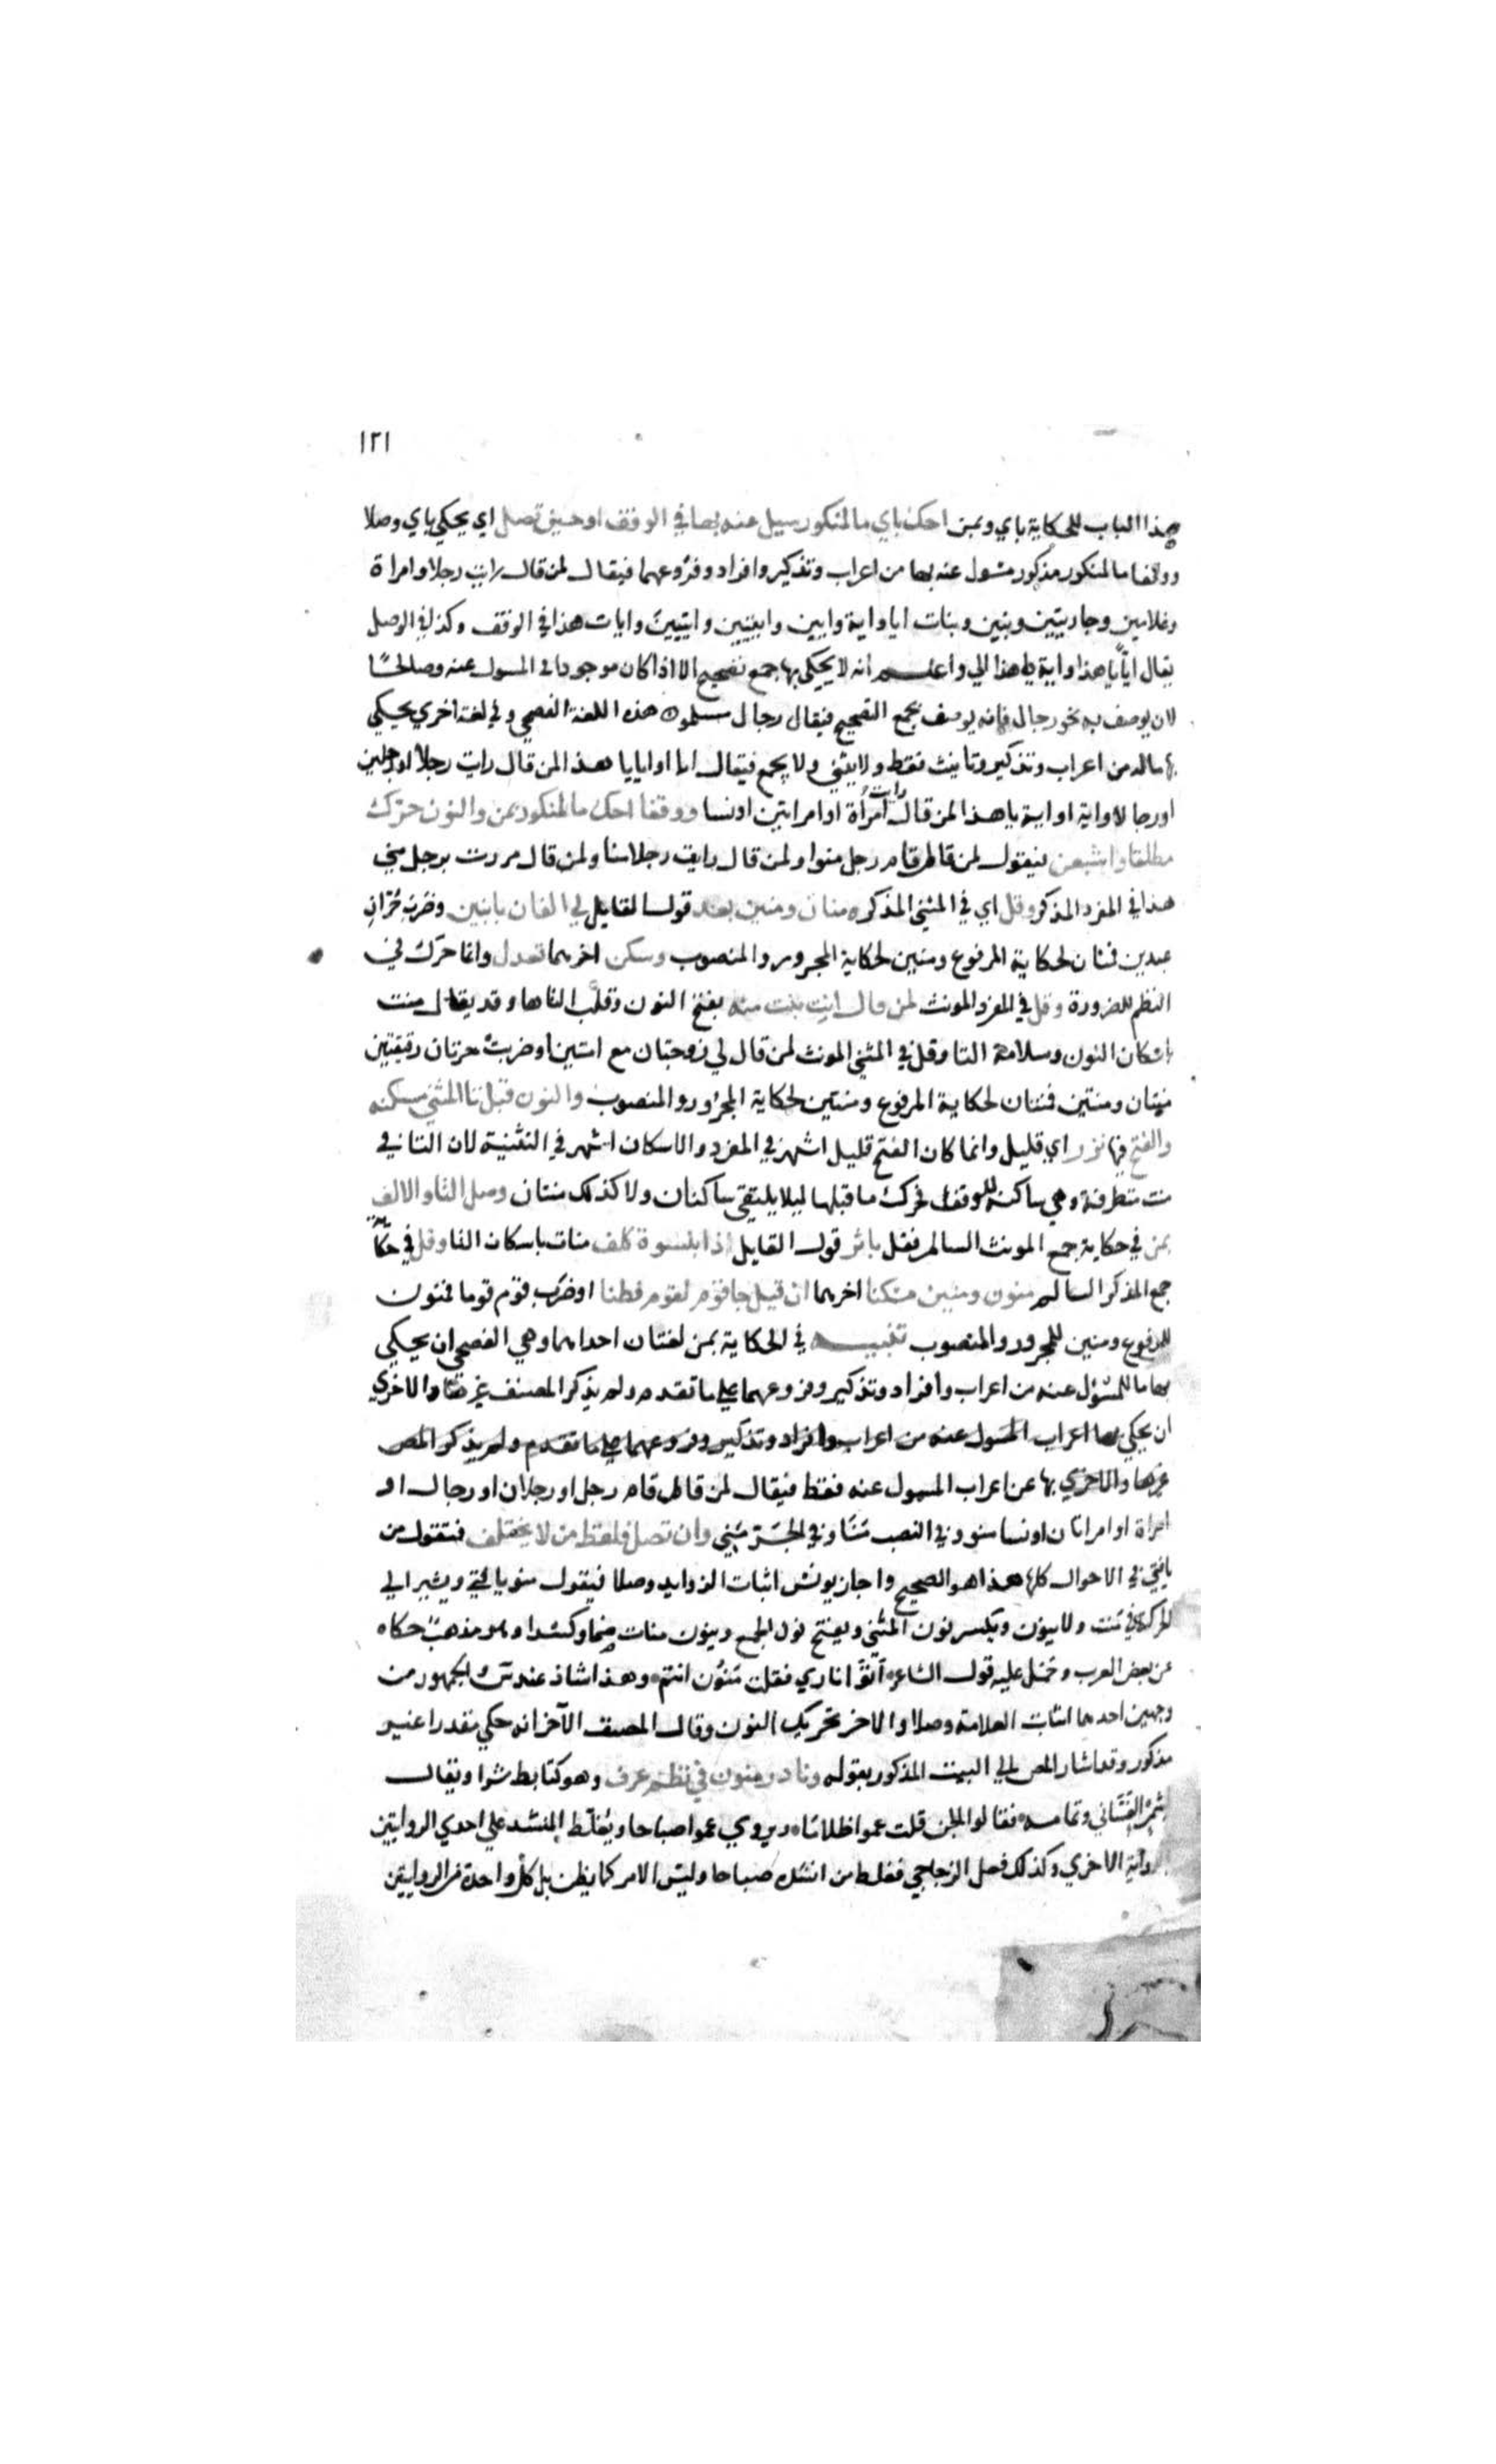 ١٢١
هذا الباب للحكاية باي وبمن احك باي ما لمنكور سيل عنه بها في الوقف او حين تصل اي يحكي باي وصلا
ووقفا ما لمنكور مذكور مسول عنه بها من اعراب وتذكير وافراد وفروعهما فيقال لمن قال رايت رجلا وامراة
وغلامين وجاريتين وبنين وبنات ايا واية وايين وايتين وايين وايات هذا في الوقف وكذا في الوصل
يقال اياً يا هذا واية يا هذا الي واعلم انه لا يحكي بها جمع تصحيح الا اذا كان موجودا في المسول عنه وصالحا
لان يوصف به نحو رجال فانه يوصف بجمع التصحيح فيقال رجال مسلمون هذه اللغة الفصحي وفي لغة اخري يحكي
بها ماله من اعراب وتذكير وتانيث فقط ولا يثني ولا يجمع فيقال ايا او ايا يا هذا لمن قال رايت رجلا او رجلين
او رجالا واية او اية يا هذا لمن قال رايت امرأة او امراتين او نسا ووقفا احك ما لمنكور بمن والنون حرك
مطلقا واشبعن فيقول لمن قال قام رجل منوا ولمن قال رايت رجلا منا ولمن قال مررت برجل مني
هذا في المفرد المذكر وقل اي في المثني المذكر منان ومنين بعد قول القايل لي الفان بابنين وضرب حران
عبدين فمنان لحكاية المرفوع ومنين لحكاية المجرور والمنصوب وسكن اخرهما تعدل وانما حرك في
النظم للضرورة وقل في المفرد المونث لمن قال اتت بنت منه بفتح النون وقلب التا ها وقد يقال منت
باسكان النون وسلامة التا وقل في المثني المونث لمن قال لي زوجتان مع امتين او ضربت حرتان رقيقتين
منتان ومنتين فمنتان لحكاية المرفوع ومنتين لحكاية المجرور والمنصوب والنون قبل تا المثني مسكنه
والفتح فيها نزر اي قليل وانما كان الفتح قليل اشهر في المفرد والاسكان اشهر في التثنية لان التا في
منت متطرفة وهي ساكنة للوقف فحرك ما قبلها ليلا يلتقي ساكنان ولا كذلك منتان وصل التا والالف
بمن في حكاية جمع المونث السالم فقل باثر قول القايل ذا بنسوة كلف منات باسكان التا وقل في حكاية
جمع المذكر السالم منون ومنين مسكنا اخرهما ان قيل جا قوم لقوم فطنا او ضرب قوم قوما فمنون
للمرفوع ومنين للمجرور والمنصوب تنبيه في الحكاية بمن لغتان احداهما وهي الفصحي ان يحكي
بها ما للمسؤل عنه من اعراب وافراد وتذكير وفروعهما علي ما تقدم ولم يذكر المصنف غيرها والاخري
ان يحكي بها اعراب المسول عنه من اعراب وافراد وتذكير وفروعهما علي ما تقدم ولم يذكر المص
غيرها والاخري بها عن اعراب المسول عنه فقط فيقال لمن قال قام رجل او رجلان او رجال او
امراة او امراتان او نسا منو وفي النصب مَنَا وفي الجر مَنِي وان تصل فلفظ من لا يختلف فتقول من
يا فتي في الاحوال كلها هذا هو الصحيح واجاز يونس اثبات الزوايد وصلا فيقول منو يا فتي ويشير الي
الحركة في منت ولا ينون ويكسر نون المثني ويفتح نون الجمع وينون منات ضما وكسرا وهو مذهب حكاه
عن بعض العرب وحمل عليه قول الشاعر اتوا ناري فقلت منون انتم وهذا شاذ عند س والجمهور من
وجهين احدهما اثبات العلامة وصلا والاخر تحريك النون وقال المصنف الآخر انه حكي مقدرا غير
مذكور وقد اشار المص الي البيت المذكور بقوله ونادر منون في نظم عرف وهو كتابط شرا ويقال
لشمر الغساني وتمامه فقالوا الجن قلت عموا ظلاما ويروي عموا صباحا ويغلط المنشد علي احدي الروايتين
بالرواية الاخري وكذلك فعل الزجاجي فغلط من انشد صباحا وليس الامر كما يظن بل كل واحدة من الروايتين